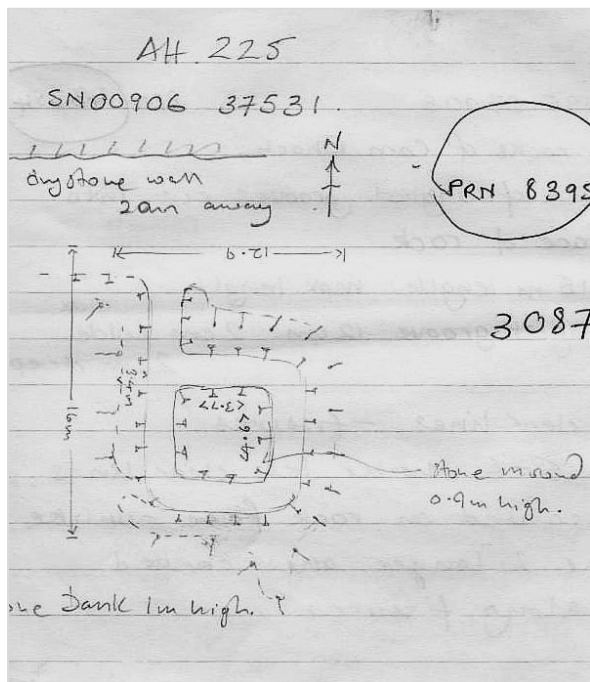 AH. 225
SN00906 37531.
drystone wall
20m away
N
PRN 8395
12.9
3087
16m
3.4m
<3.77
4.67
stone mound
0.9m high.
bank 1m high.